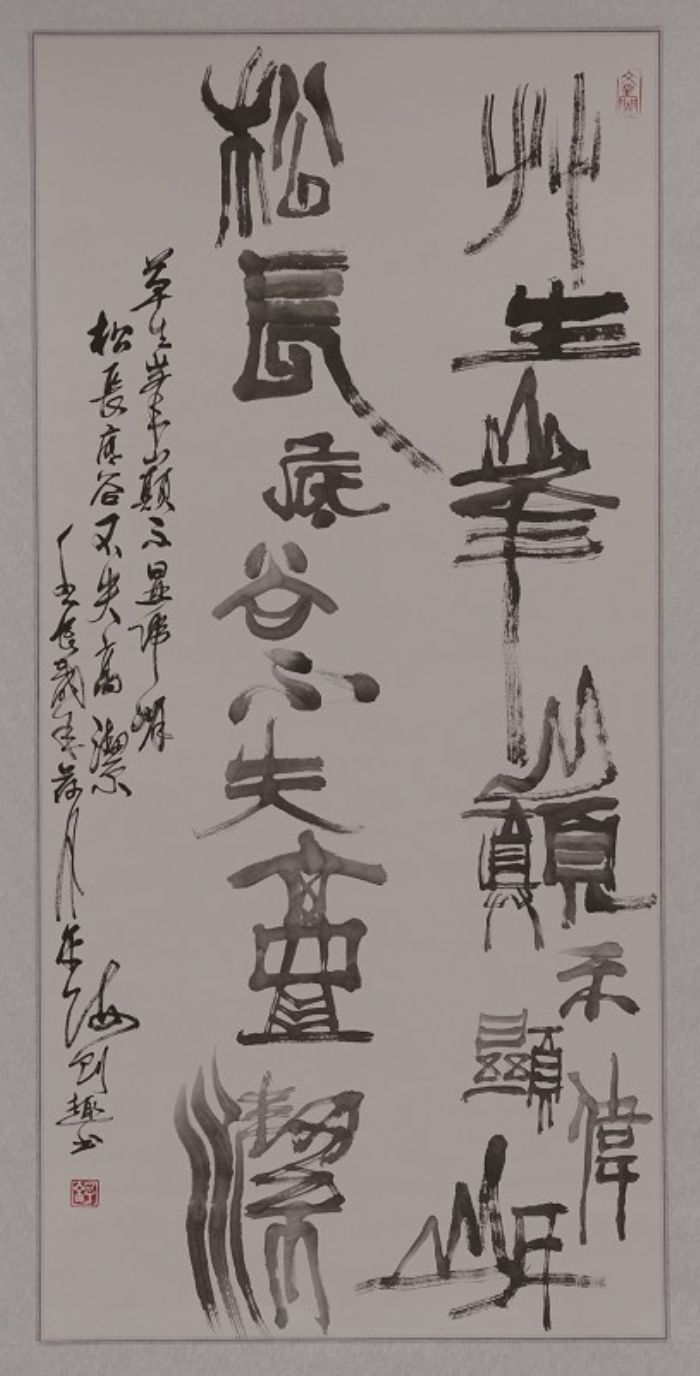 艸生峯巔不顯偉岸
松長底谷不失高潔
草生峯巔不显伟岸
松長底谷不失高潔
壬辰歲荷月